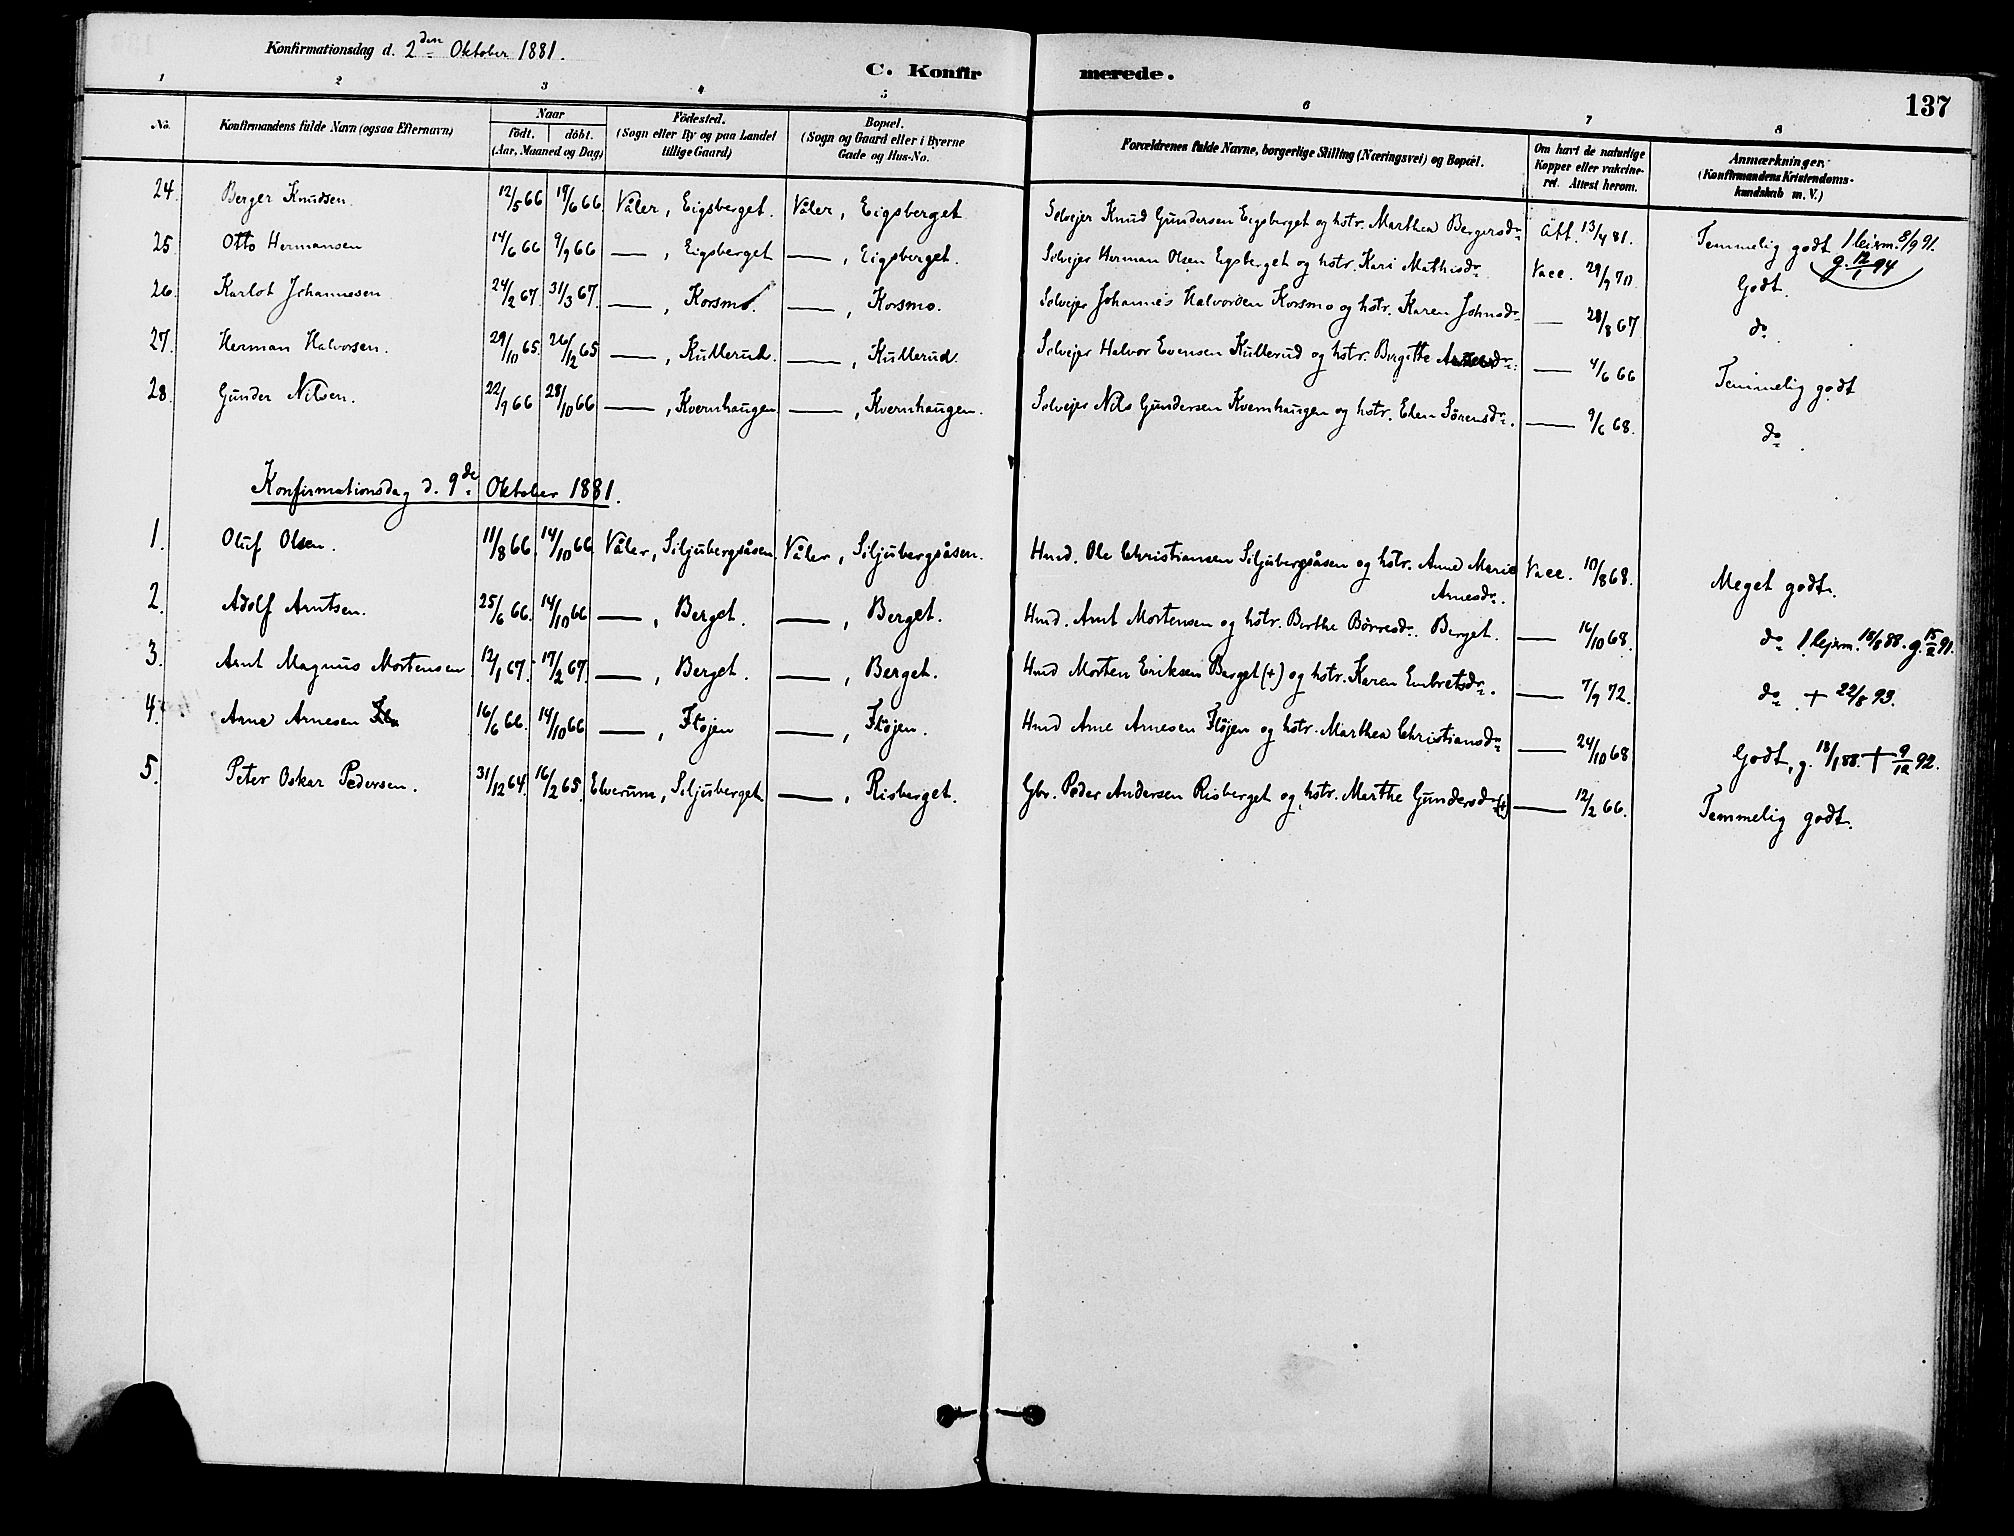 Konfirmationsdag d. 2den Oktober 1881.
C. Konfirmerede.
137
1 2 3 4 5 6 7 8
No. Konfirmandens fulde Navn (ogsaa Efternavn) Naar födt. döbt. (Aar, Maaned og Dag) Födested. (Sogn eller By og paa Landet tillige Gaard) Bopæl. (Sogn og Gaard eller i Byerne Gade og Hus-No. Forældrenes fulde Navne, borgerlige Stilling (Næringsvei) og Bopæl. Om havt de naturlige Kopper eller vakcineret. Attest herom. Anmærkninger (Konfirmandens Kristendomskundskab m. V.)
24. Berger Knudsen. 12/5 66 19/6 66 Våler, Eigsberget. Våler, Eigsberget Selvejer Knud Gundersen Eigsberget og hstr. Marthea Bergersdr. Att. 13/4 81. Temmelig godt 1 leierm. 8/9 91. g. 12/1 94
25. Otto Hermansen 14/6 66 9/9 66 — , Eigsberget — , Eigsberget. Selvejer Herman Olsen Eigsberget og hstr. Kari Mathisdr. Vacc. 29/9 70 Godt.
26. Karlot Johannesen 24/2 67 31/3 67. — , Korsmo. — , Korsmo. Selvejer Johannes Halvorsen Korsmo og hstr. Karen Johnsdr. — 28/8 67 do.
27. Herman Halvorsen. 29/10 65. 26/12 65 — , Kullerud. — , Kullerud. Selvejer Halvor Evensen Kullerud og hstr. Birgitte — 4/6 66 Temmelig godt
28. Gunder Nilsen. 22/9 66 28/10 66 — , Kvernhaugen — , Kvernhaugen. Selvejer Nils Gundersen Kvernhaugen og hstr. Elen Sörensdr. — 9/6 68. do.
Konfirmationsdag d. 9de Oktober 1881.
1. Oluf Olsen. 11/8 66. 14/10 66 Våler, Siljubergsåsen Våler, Siljubergsåsen. Hmd. Ole Christiansen Siljubergsåsen og hstr. Anne Marie Arnesdr. Vacc. 10/8 68. Meget godt.
2. Adolf Arntsen. 25/6 66. 14/10 66 — , Berget. — , Berget. Hmd. Arnt Mortensen og hstr. Berthe Börresdr. Berget. — 16/10 68. do 1 lejerm. 18/8 88. g. 15/2 91.
3. Arnt Magnus Mortensen 12/1 67. 17/2 67. — , Berget. — , Berget. Hmd Morten Eriksen Berget (+) og hstr. Karen Embretsdr. — 7/9 72. do. + 22/8 93.
4. Arne Arnesen 16/6 66. 14/10 66 — , Fløjen — , Fløjen. Hmd Arne Arnesen Fløjen og hstr. Marthea Christiansdr — 24/10 68 Godt, g. 18/1 88. + 9/12 92.
5. Peter Oskar Pedersen. 31/12 64. 16/2 65. Elverum, Siljuberget — , Risberget. Gbr. Peder Andersen Risberget og hstr. Marthe Gundersdr (+) — 12/2 66. Temmelig godt.